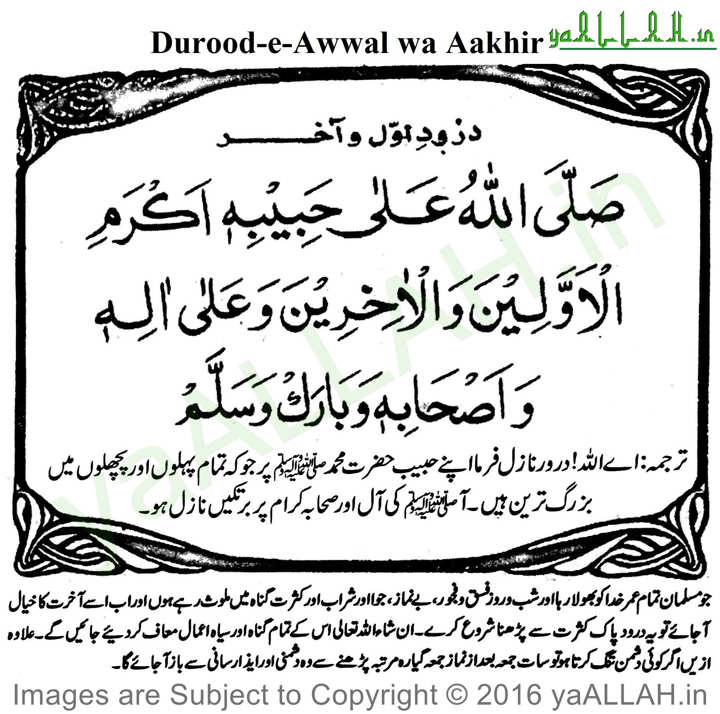 Durood-e-Awwal wa Aakhir yaALLAH.in
درود اوّل و آخر
صَلَّى اللّٰهُ عَلٰى حَبِيْبِهٖ اَكْرَمِ
الْاَوَّلِيْنَ وَالْاٰخِرِيْنَ وَعَلٰى اٰلِهٖ
وَاَصْحَابِهٖ وَبَارِكْ وَسَلَّمْ
ترجمہ: اے اللہ! درود نازل فرما اپنے حبیب حضرت محمد ﷺ پر جو کہ تمام پہلوں اور پچھلوں میں
بزرگ ترین ہیں۔ آپ ﷺ کی آل اور صحابہ کرام پر برکتیں نازل ہو۔
جو مسلمان تمام عمر خدا کو بھولا رہا اور شب و روز فسق و فجور، بے نماز، جوا اور شراب اور کثرت گناہ میں ملوث رہے ہوں اور اب اسے آخرت کا خیال
آجائے تو یہ درود پاک کثرت سے پڑھنا شروع کرے۔ ان شاء اللہ تعالی اس کے تمام گناہ اور سیاہ اعمال معاف کر دیئے جائیں گے۔ علاوہ
ازیں اگر کوئی دشمن تنگ کرتا ہو تو سات جمعہ بعد از نماز جمعہ گیارہ مرتبہ پڑھنے سے وہ دشمنی اور ایذا رسانی سے باز آجائے گا۔
yaALLAH.in
Images are Subject to Copyright © 2016 yaALLAH.in